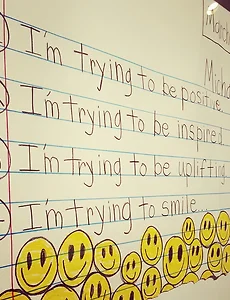 I'm trying to be positive.
I'm trying to be inspired
I'm trying to be uplifting...
I'm trying to smile...